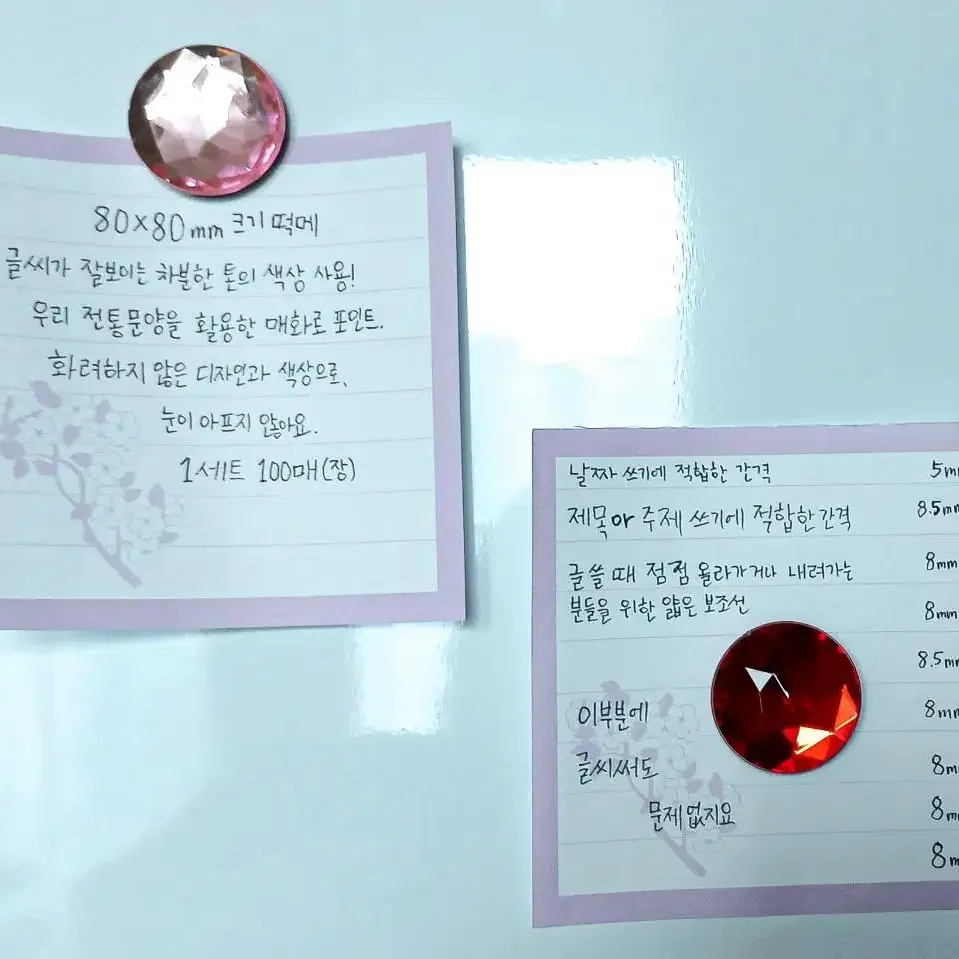 80×80mm 크기 떡메
글씨가 잘보이는 차분한 톤의 색상 사용!
우리 전통문양을 활용한 매화로 포인트.
화려하지 않은 디자인과 색상으로,
눈이 아프지 않아요.
1세트 100매(장)
날짜 쓰기에 적합한 간격 5mm
제목이나 주제 쓰기에 적합한 간격 8.5mm
글 쓸 때 점점 올라가거나 내려가는 8mm
분들을 위한 얇은 보조선 8mm
8.5mm
이부분에 8mm
글씨써도 8m
문제없지요 8m
8m